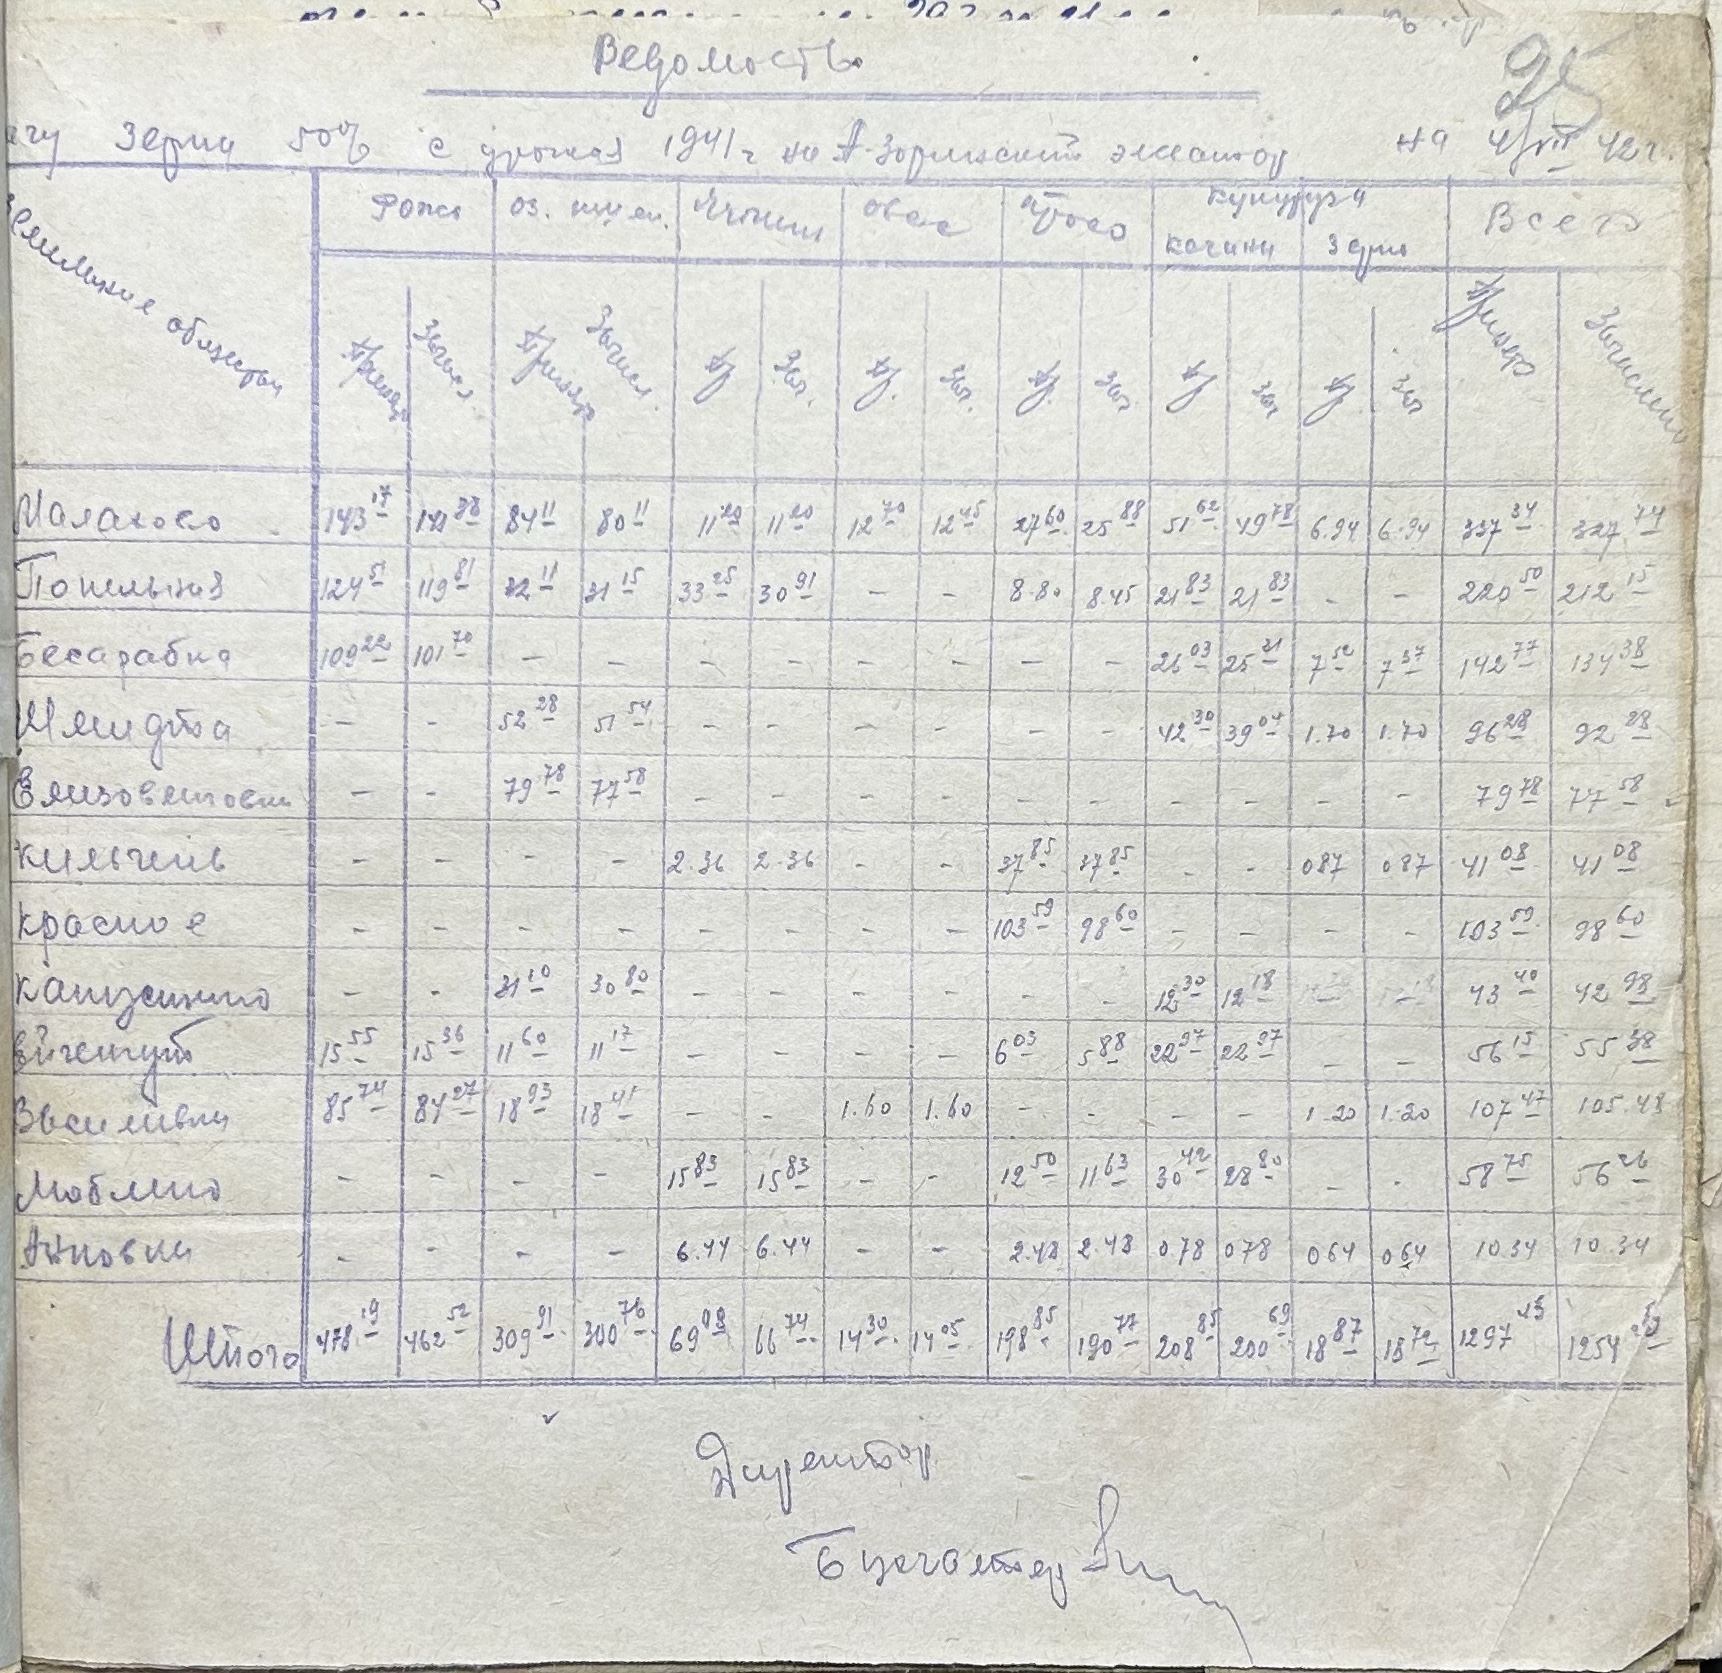 95
Ведомость
ачу зерна 50% с урожая 1941 г на А-Зоринский элеватор на 4/VII 42 г.
Земельные общества Рожь оз. пшен. Ячмень Овес Просо Кукуруза Всего
качани зерно
Принято Зачисл. Принято Зачисл. Пр Зач. Пр. Зач. Пр. Зач Пр Зач Пр Зач Принято Зачислено
Малахово 143 17 141 38 84 11 80 11 11 20 11 20 12 70 12 45 27 60 25 88 51 62 49 78 6.94 6.94 337 34 327 74
Попельназ 124 51 119 81 32 11 31 15 33 25 30 91 - - 8.80 8.45 21 83 21 83 - - 220 50 212 15
Бесарабка 109 22 101 70 - - - - - - - - 26 03 25 31 7 52 7 37 142 77 134 38
Шмидта - - 52 28 51 54 - - - - - - 42 30 39 04 1.70 1.70 96 28 92 28
Елизоветовка - - 79 78 77 58 - - - - - - - - - - 79 78 77 58
Кильчень - - - - 2.36 2.36 - - 37 85 37 85 - - 087 087 41 08 41 08
Красное - - - - - - - - 103 59 98 60 - - - - 103 59 98 60
Капустино - - 31 10 30 80 - - - - - - 12 30 12 18 43 40 42 98
15 55 15 36 11 60 11 17 - - - - 6 03 5 88 22 97 22 97 - - 56 15 55 38
Василивка 85 74 84 27 18 93 18 41 - - 1.60 1.60 - - - - 1.20 1.20 107 47 105.48
- - - - 15 83 15 83 - - 12 50 11 63 30 42 28 80 - - 58 75 56 26
Ановка - - - - 6.44 6.44 - - 2.48 2.48 078 078 064 064 10.34 10.34
Итого 478 19 462 52 309 91 300 76 69 08 66 74 14 30 14 05 198 85 190 77 208 85 200 69 18 87 18 72 1297 1254
Директор
Бухгалтер